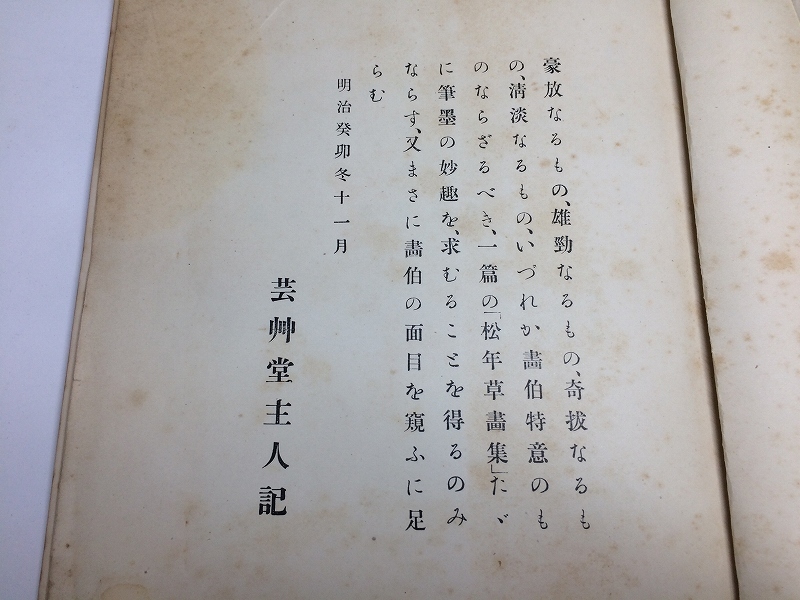 豪放なるもの、雄勁なるもの、奇拔なるも
の、淸淡なるもの、いづれか畵伯特意のも
のならざるべき、一篇の「松年草畵集」たゞ
に筆墨の妙趣を、求むることを得るのみ
ならす、又まさに畵伯の面目を窺ふに足
らむ
明治癸卯冬十一月
芸艸堂主人記